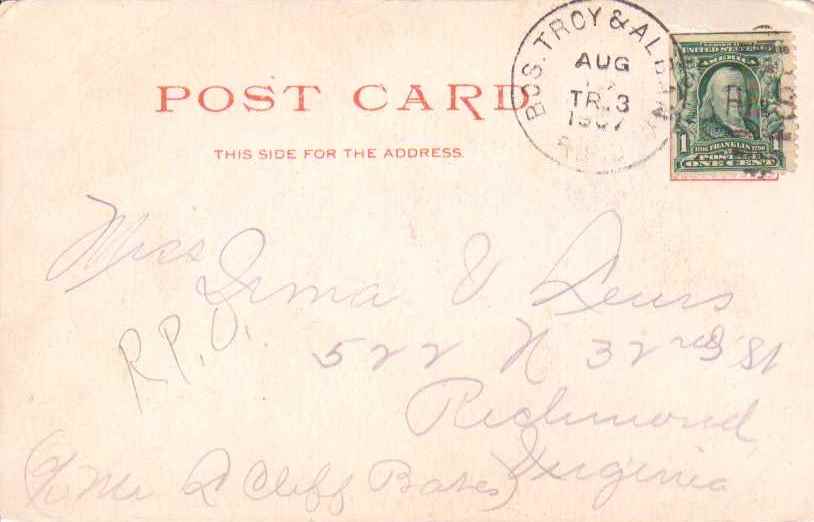 BOS. TROY & ALB
AUG
TR. 3
1907
R.P.O.
SERIES 1902
UNITED STATES OF
AMERICA
1706 FRANKLIN 1790
1 POSTAGE
ONE CENT
POST CARD
THIS SIDE FOR THE ADDRESS.
Miss
Irma V Lewis
R.P.O.
522 N 32nd St
Richmond
Virginia
(C/o Mr A Cliff Bates)